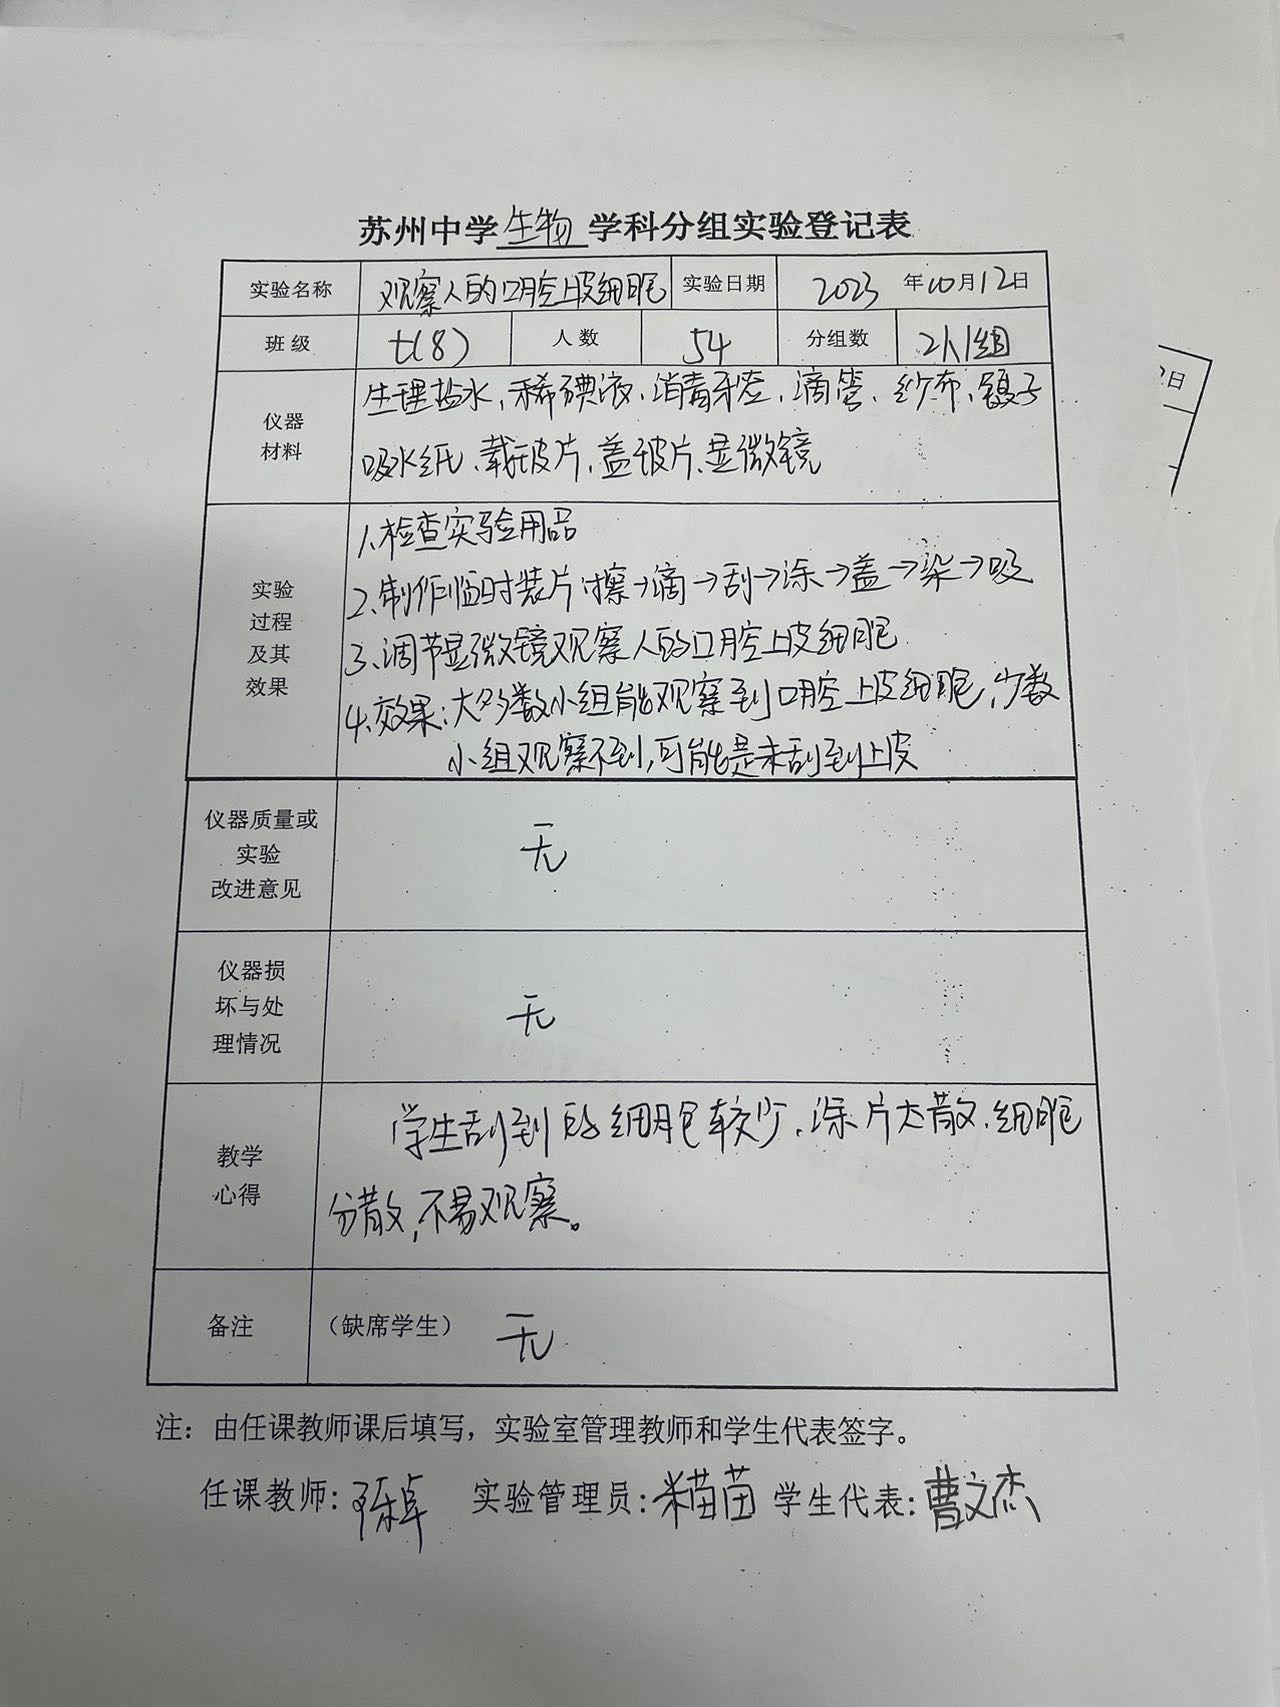 苏州中学生物学科分组实验登记表
实验名称 观察人的口腔上皮细胞 实验日期 2023年10月12日
班级 七(8) 人数 54 分组数 2人1组
仪器材料
生理盐水、稀碘液、消毒牙签、滴管、纱布、镊子
吸水纸、载玻片、盖玻片、显微镜
实验过程及其效果
1、检查实验用品
2、制作临时装片:擦→滴→刮→涂→盖→染→吸
3、调节显微镜观察人的口腔上皮细胞
4、效果:大多数小组能观察到口腔上皮细胞,少数
小组观察不到,可能是未刮到上皮
仪器质量或实验改进意见 无
仪器损坏与处理情况 无
教学心得
学生刮到的细胞较少、涂片太散、细胞
分散,不易观察。
备注 (缺席学生) 无
注:由任课教师课后填写,实验室管理教师和学生代表签字。
任课教师:陈卓 实验管理员:苗苗 学生代表:曹文杰
2日